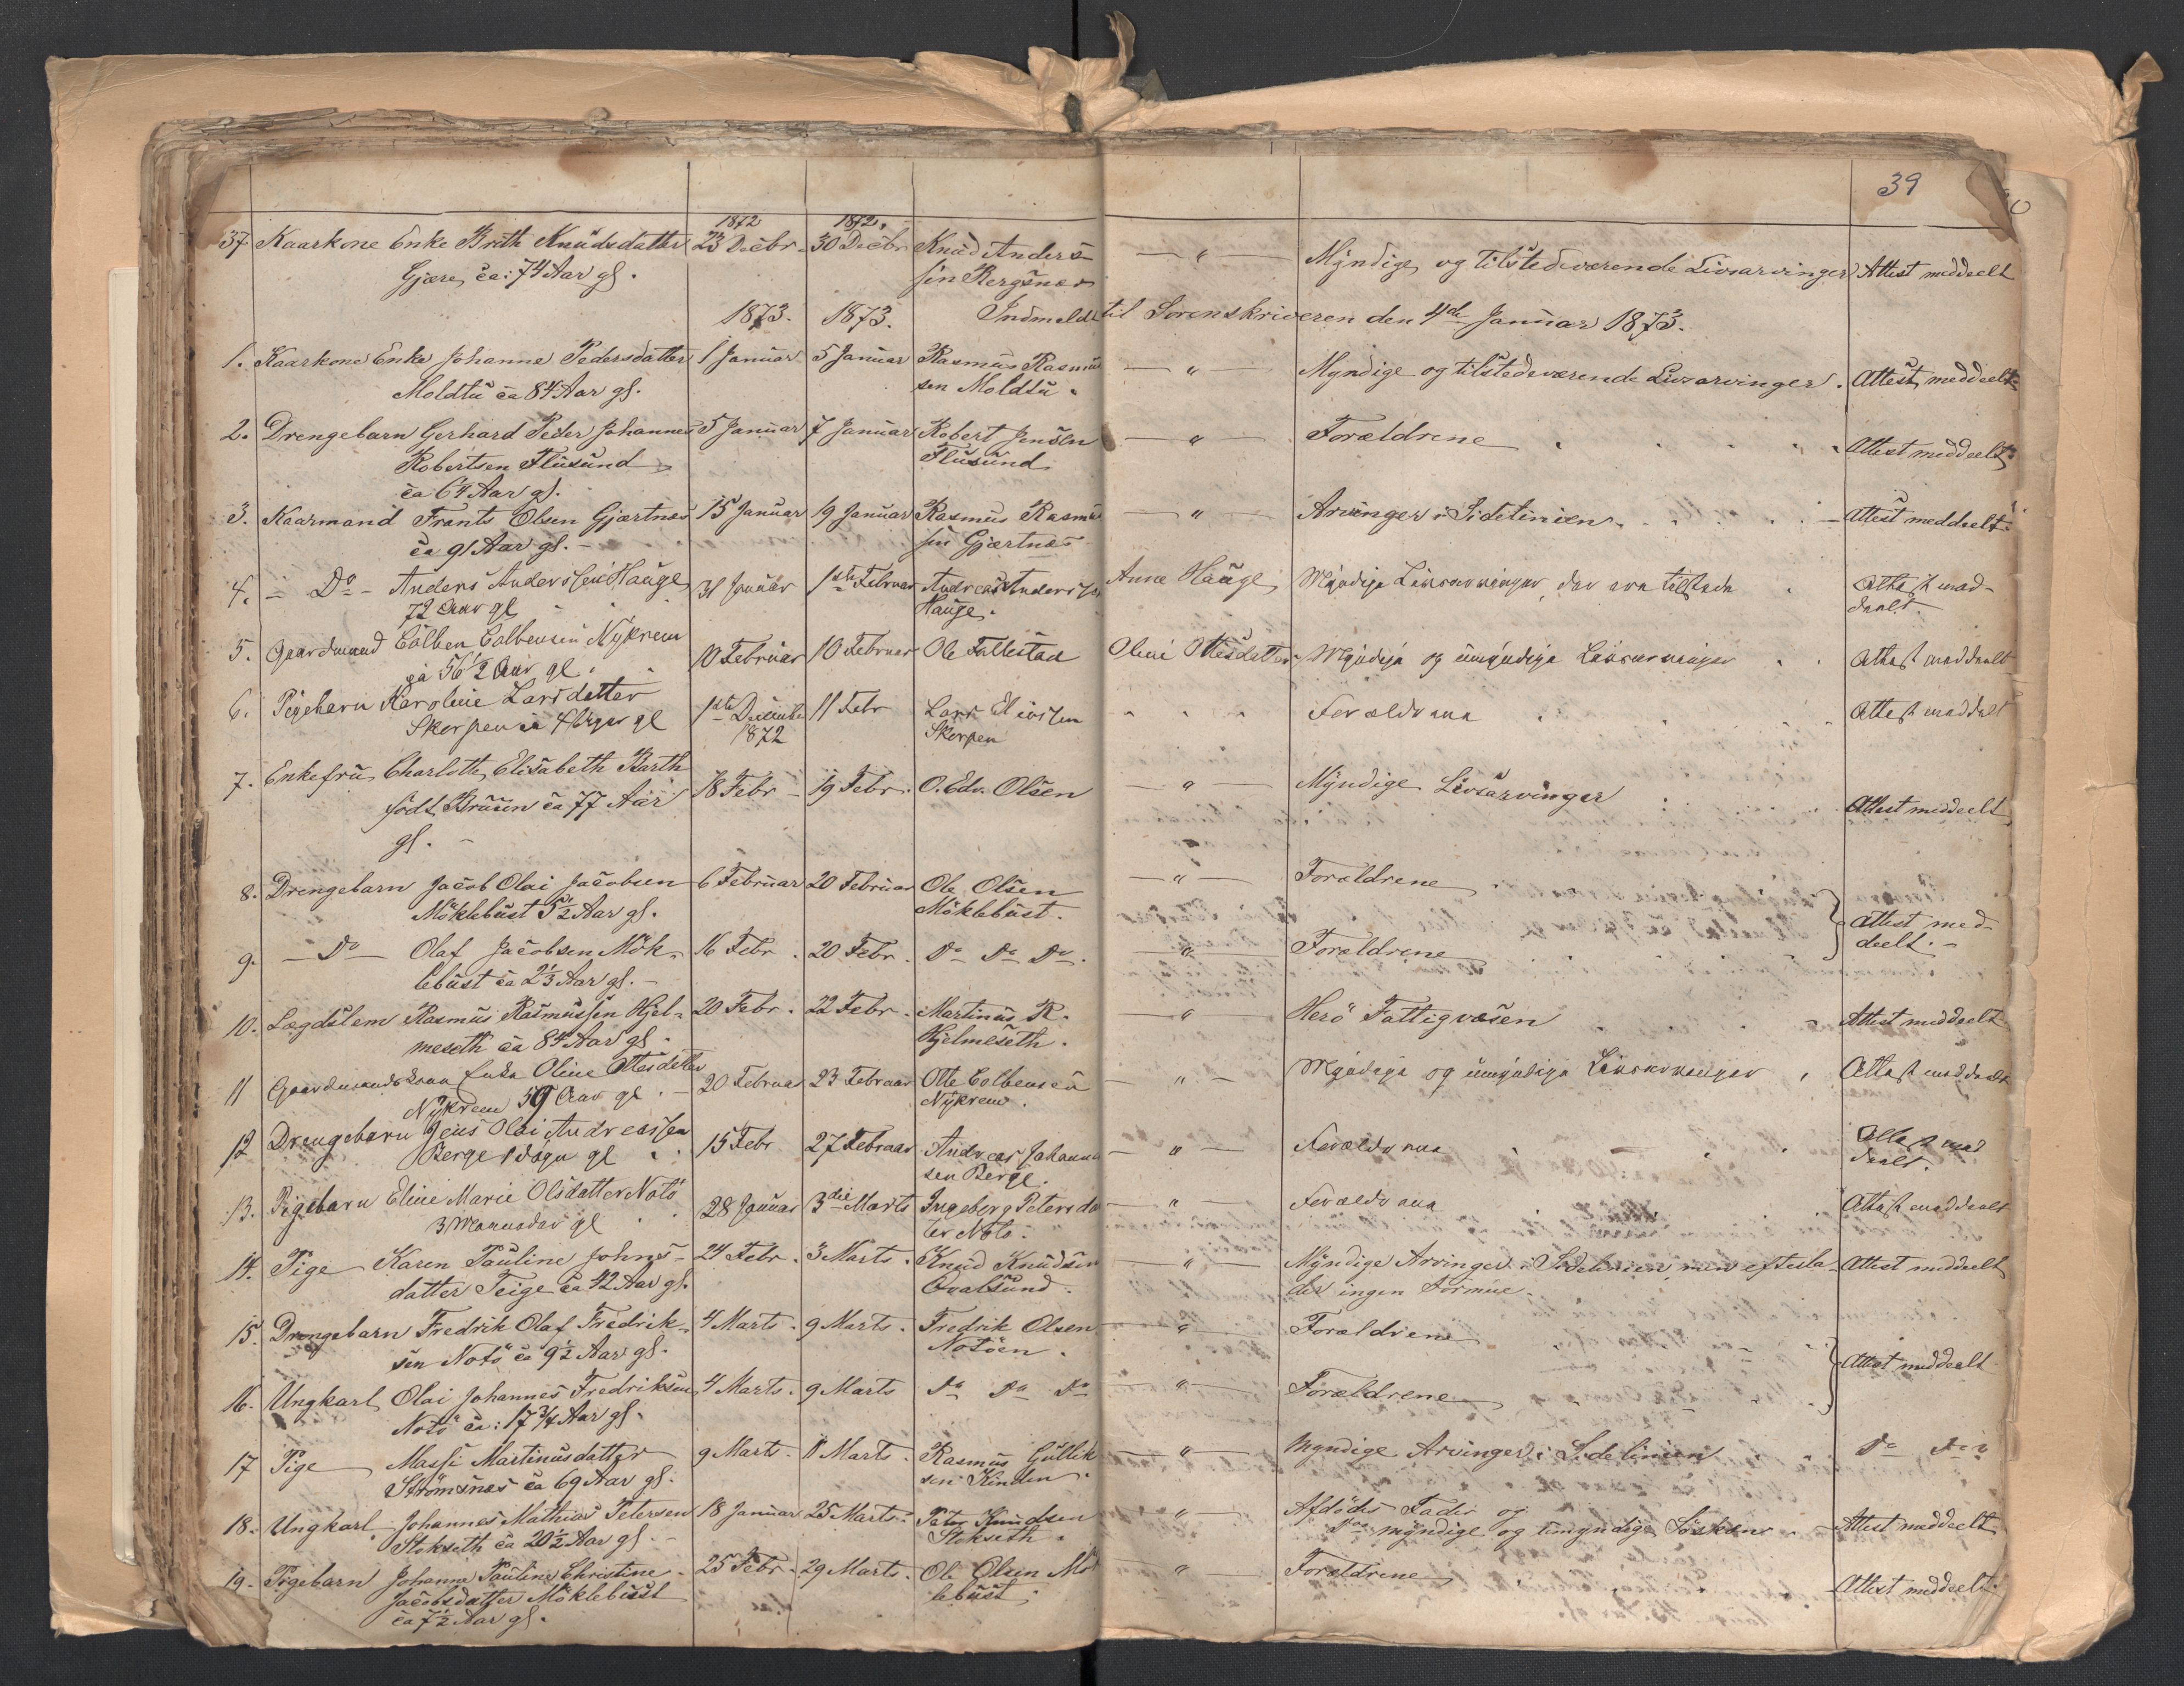 39
1872 1872.
37. Kaarkone Enke Brith Knudsdatter 23 Decbr. 30 Decbr Knud Anders- — " — Myndige og tilstedeværende Livsarvinger Attest meddeelt
Gjære, ca: 74 Aar gl. sen Bergsnes
1873. 1873. Indmeldt til Sorenskriveren den 4de Januar 1873.
1. Kaarkone Enke Johanne Pedersdatter 1 Januar 5 Januar Rasmus Rasmus — " — Myndige og tilstedeværende Livsarvinger. Attest meddeelt
Moldtu ca 84 Aar gl. sen Moldtu.
2. Drengebarn Gerhard Peder Johannes 5 Januar 7 Januar Robert Jensen — " — Forældrene Attest meddeelt
Robertsen Flusund Flusund
ca 6¼ Aar gl.
3. Kaarmand Frants Olsen Gjærtnes 15 Januar 19 Januar Rasmus Rasmus — " — Arvinger i Sidelinien. Attest meddeelt
ca 91 Aar gl. sen Gjærtnes
4. — Do — Anders Andersen Hauge 31 Januar 1ste Februar Andreas Andersen Anne Hauge Myndige Livsarvinger, der ere tilstede Attest med-
72 Aar gl Hauge. deelt.
5. Gaardmand Colben Colbensen Nykrem 10 Februar 10 Februar Ole Fallestad Oline Ottesdatter Myndige og umyndige Livsarvinger Attest meddeelt
ca 56½ Aar gl.
6. Pigebarn Karoline Larsdatter 1ste December 11 Febr Lars Eliassen Forældrene Attest meddelt
Skorpen ca 4 gl 1872 Skorpen
7. Enkefru Charlotte Elisabeth Barth 18 Febr 19 Febr. O. Edv. Olsen — " — Myndige Livsarvinger Attest meddeelt
født Bruun ca 77 Aar
gl.
8. Drengebarn Jacob Olai Jacobsen 6 Februar 20 Februar Ole Olsen — " — Forældrene
Möklebust 5½ Aar gl. Möklebust. Attest med-
9. — Do — Olaf Jacobsen Mök- 16 Febr. 20 Febr. Do Do Do. — " — Forældrene deelt.
lebust ca 2⅓ Aar gl.
10. Lægdslem Rasmus Rasmussen Hjel- 20 Febr. 22 Febr. Martinus R. — " — Herö Fattigvæsen Attest meddeelt
meseth ca 84 Aar gl. Hjelmeseth.
11 Gaardmandskone Enke Oline Ottesdatter 20 Februar 23 Februar Otte Colbensen — " — Myndige og umyndige Livsarvinger Attest meddeelt
Nykrem 59 Aar gl. Nykrem.
12 Drengebarn Jens Olai Andreassen 15 Febr 27 Februar Andreas Johann — " — Forældrene Attest med
Berge 1 døgn gl sen Berge. deelt.
13. Pigebarn Eline Marie Olsdatter Notö 28 Januar 3die Marts Ingeborg Petersda — " — Forældrene Attest meddeelt
3 Maaneder gl ter Notö.
14. Pige Karen Pauline Johns- 24 Febr. 3 Marts. Knud Knudsen — " — Myndige Arvinger i Sidelinien, men efterla- Attest meddeelt
datter Teige ca 42 Aar gl. Qvalsund. der ingen Formue.
15. Drengebarn Fredrik Olaf Fredrik- 4 Marts. 9 Marts. Fredrik Olsen — " — Forældrene
sen Notö ca 9½ Aar gl. Notöen. Attest meddeelt
16. Ungkarl Olai Johannes Fredriksen 4 Marts. 9 Marts Do Do Do — " — Forældrene
Notö ca: 17¾ Aar gl.
17 Pige Massi Martinusdatter 9 Marts. 11 Marts. Rasmus Gullik — " — Myndige Arvinger i Sidelinien Do Do
Strömsnes ca 69 Aar gl. sen Kinden.
18. Ungkarl Johannes Mathias Petersen 18 Januar 25 Marts. Peter Knudsen — " — Afdödes Fader og
Stokseth ca 20½ Aar gl. Stokseth. Do myndige og umyndige Söskene Attest meddeelt
19. Pigebarn Johanne Pauline Christine 25 Febr. 29 Marts. Ole Olsen Mök — " — Forældrene Attest meddeelt.
Jacobsdatter Möklebust lebust.
ca 7½ Aar gl.